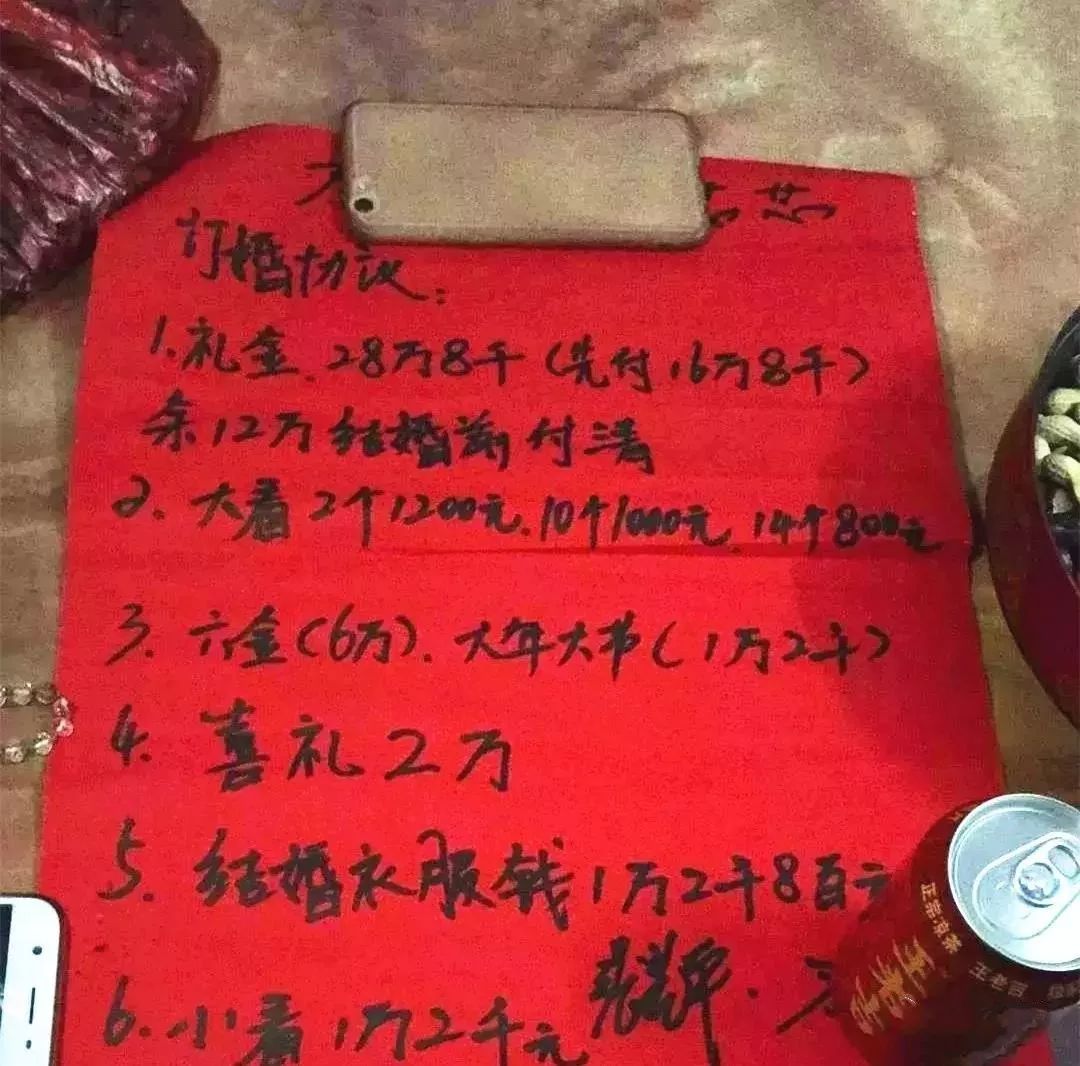 订婚协议：
1.礼金.28万8千(先付16万8千)
余12万结婚前付清
2.大看2个1200元.10个1000元.14个800元
3.六金(6万).大年大节(1万2千)
4.喜礼2万
5.结婚衣服钱1万2千8百元
6.小看1万2千元
正宗凉茶